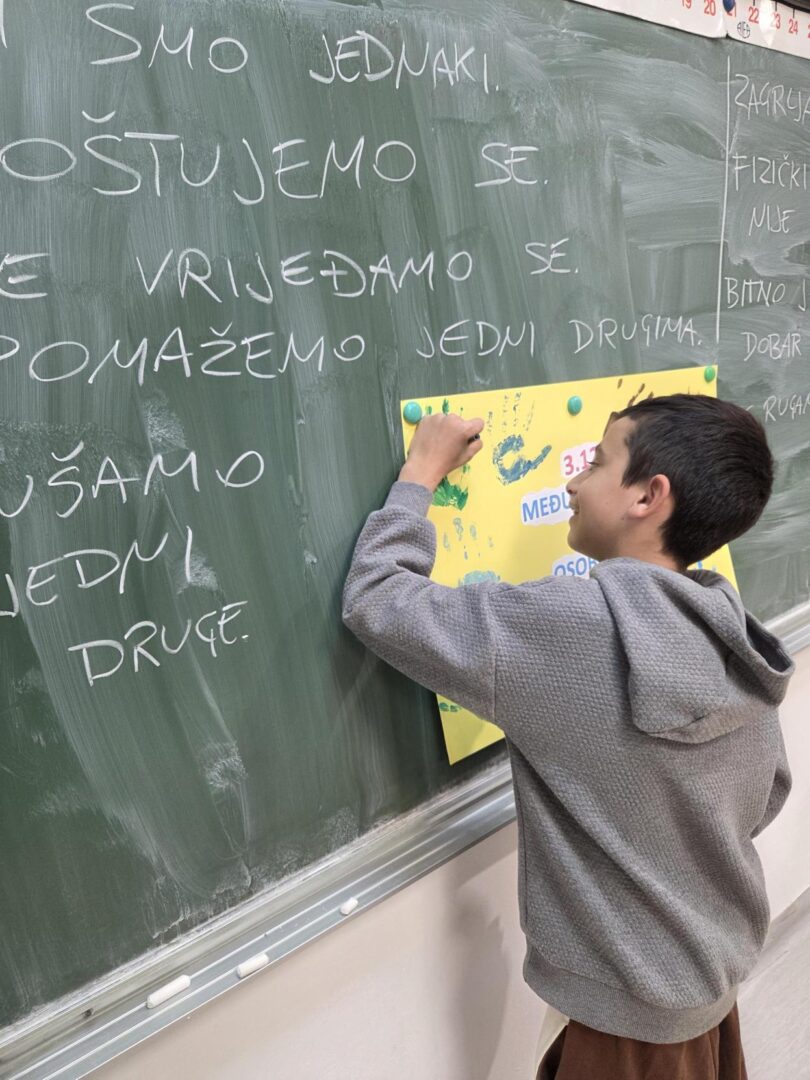 SMO JEDNAKI.
POŠTUJEMO SE.
NE VRIJEĐAMO SE.
POMAŽEMO JEDNI DRUGIMA.
SLUŠAMO
JEDNI
DRUGE.
3.12
MEĐU
OSOB
FIZIČKI
NIJE
BITNO J
DOBAR
19 20 21 22 23 24